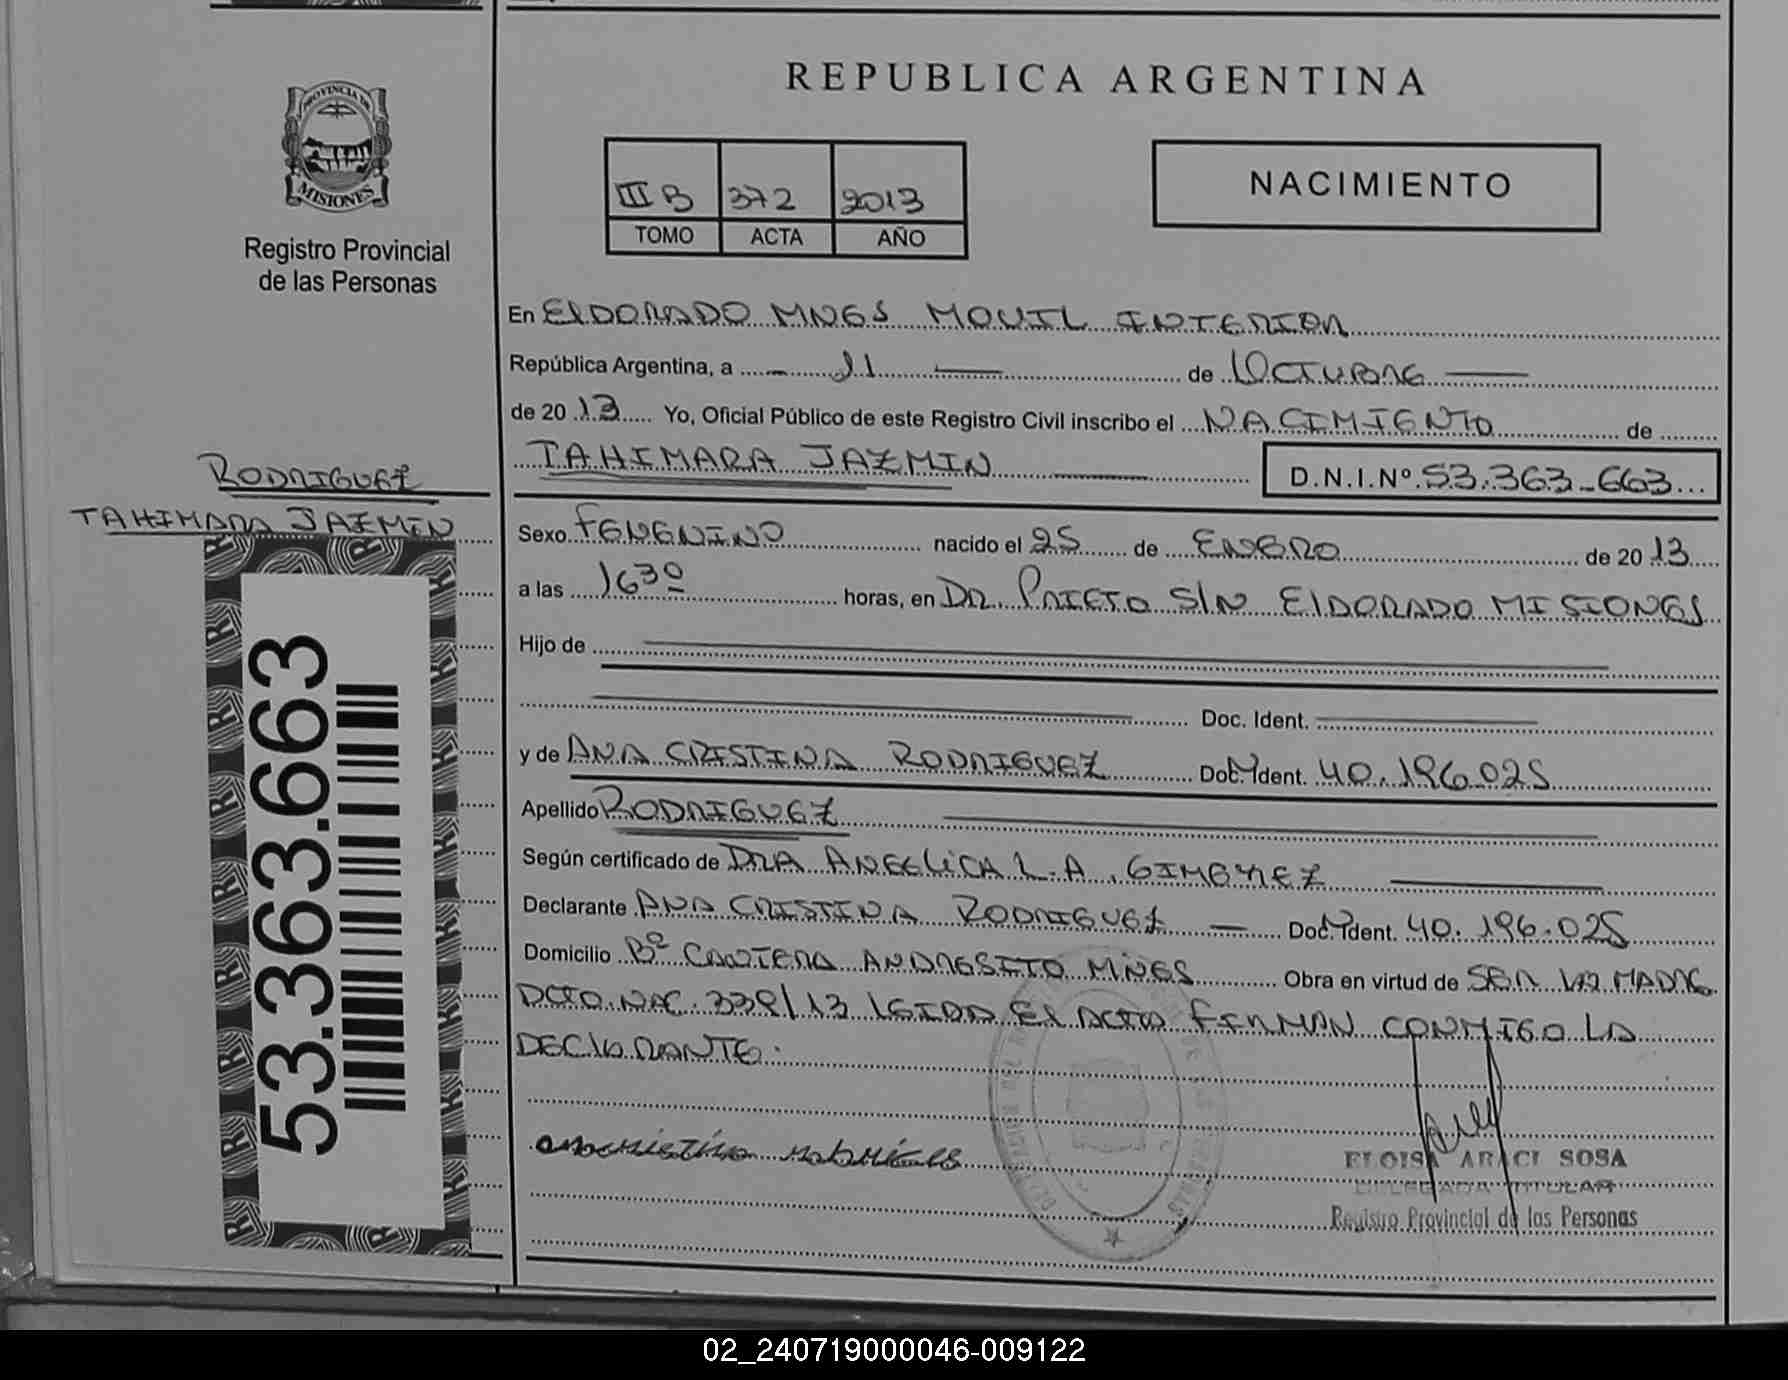 REPUBLICA ARGENTINA
PROVINCIA DE
MISIONES
Registro Provincial
de las Personas
III B 372 2013
TOMO ACTA AÑO
NACIMIENTO
En ElDORADO MNES MOVIL INTERIOR
República Argentina, a 11 de OCTUBRE
de 20 13 Yo, Oficial Público de este Registro Civil inscribo el NACIMIENTO de
TAHIMARA JAZMIN D.N.I.Nº. 53.363-663
RODRIGUEZ
TAHIMARA JAZMIN
Sexo FEMENINO nacido el 25 de ENERO de 20 13
a las 1630 horas, en DR. PRIETO S/N ElDORADO MISIONES
Hijo de
Doc. Ident.
y de ANA CRISTINA RODRIGUEZ Doc. Ident. 40.196.025
Apellido RODRIGUEZ
Según certificado de DRA ANGELICA L.A. GIMENEZ
Declarante ANA CRISTINA RODRIGUEZ Doc. Ident. 40.196.025
Domicilio Bº CANTERA ANDRESITO MNES Obra en virtud de SER LA MADRE
DCTO.NAC. 339/13 lEIDA El ACTA FIRMAN CONMIGO LA
DEClARANTE.
53.363.663
ELOISA ARACI SOSA
DELEGADA TITULAR
Registro Provincial de las Personas
02_240719000046-009122